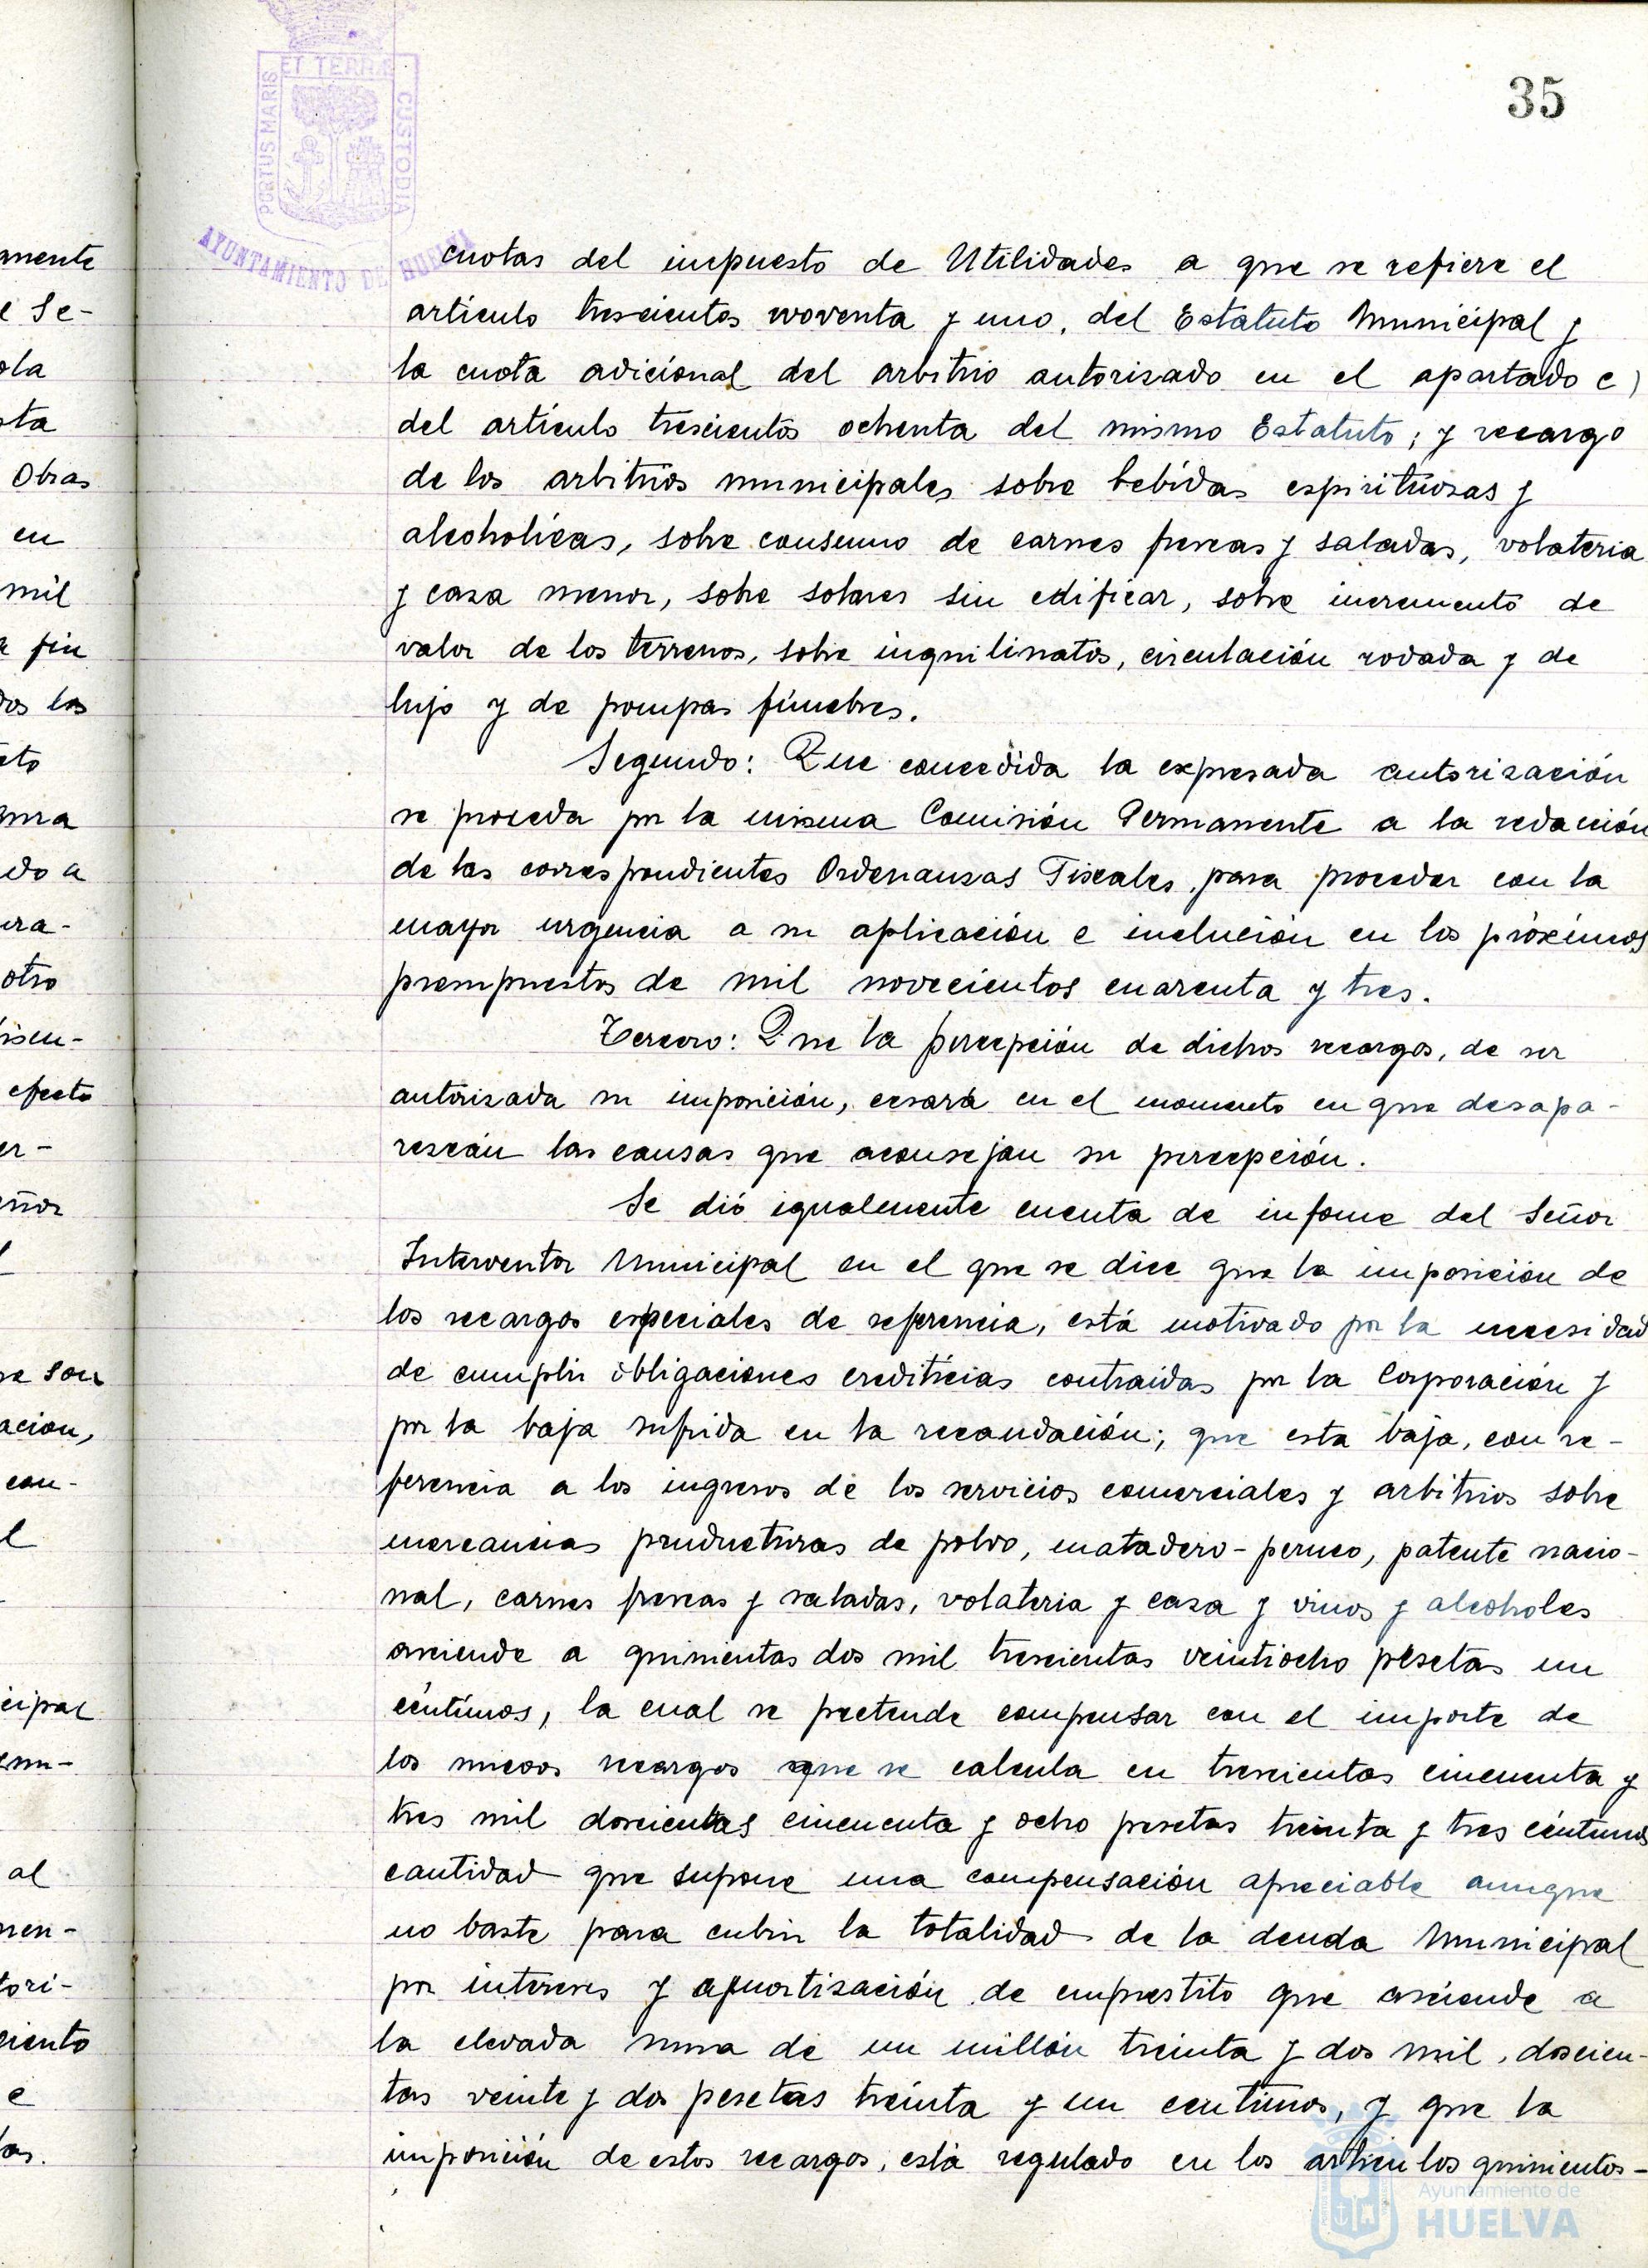 35
PORTUS MARIS ET TERRÆ CUSTODIA
AYUNTAMIENTO DE HUELVA
cuotas del impuesto de Utilidades a que se refiere el
artículo trescientos noventa y uno, del Estatuto Municipal y
la cuota adicional del arbitrio autorizado en el apartado c)
del artículo trescientos ochenta del mismo Estatuto; y recargo
de los arbitrios municipales sobre bebidas espirituosas y
alcoholicas, sobre consumo de carnes frescas y saladas, volateria
y caza menor, sobre solares sin edificar, sobre incremento de
valor de los terrenos, sobre inquilinatos, circulación rodada y de
lujo y de pompas fúnebres.
Segundo: Que concedida la expresada autorización
se proceda por la misma Comisión Permanente a la redacción
de las correspondientes Ordenanzas Fiscales, para proceder con la
mayor urgencia a su aplicación e inclución en los próximos
presupuestos de mil novecientos cuarenta y tres.
Tercero: Que la percepción de dichos recargos, de ser
autorizada su imposición, cesará en el momento en que desapa-
rescán las causas que aconsejan su percepción.
Se dió igualmente cuenta de informe del Señor
Interventor Municipal en el que se dice que la imposición de
los recargos especiales de referencia, está motivado por la necesidad
de cumplir obligaciones crediticias contraidas por la Corporación y
por la baja sufrida en la recaudación; que esta baja, con re-
ferencia a los ingresos de los servicios comerciales y arbitrios sobre
mercancias productoras de polvo, matadero-peruco, patente nacio-
nal, carnes frescas y saladas, volateria y caza y vinos y alcoholes
asciende a quinientas dos mil trescientas veintiocho pesetas un
céntimos, la cual se pretende compensar con el importe de
los nuevos recargos que se calcula en trescientas cincuenta y
tres mil doscientas cincuenta y ocho pesetas treinta y tres céntimos
cantidad que supone una compensación apreciable aunque
no baste para cubrir la totalidad de la deuda Municipal
por intereses y amortización de emprestito que asciende a
la elevada suma de un millón treinta y dos mil, doscien-
tas veinte y dos pesetas treinta y un centimos, y que la
imposición de estos recargos, está regulado en los articulos quinientos-
amente
e Se-
ola
sta
Obras
en
mil
a fin
dos los
eto
ido a
ura-
otro
efecto
er-
eñor
l
ue son
acion,
con-
l
cipal
al
men-
tori-
ciento
e
Ayuntamiento de
HUELVA